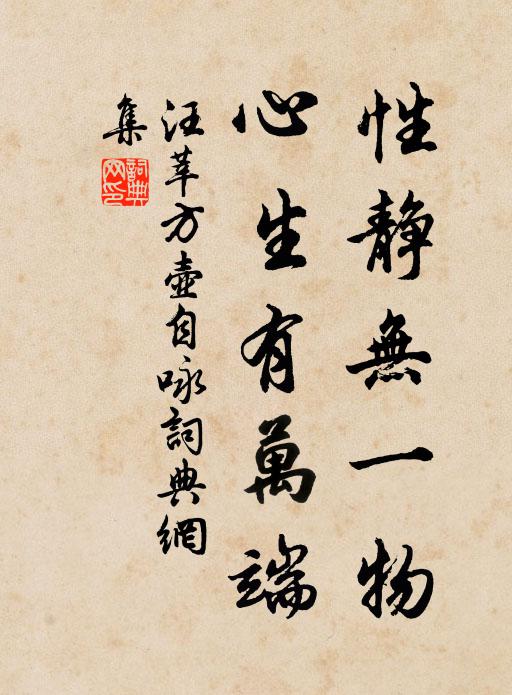 性静無一物
心生有萬端
汪莘方壺自咏詞典網
集
詞典
网印